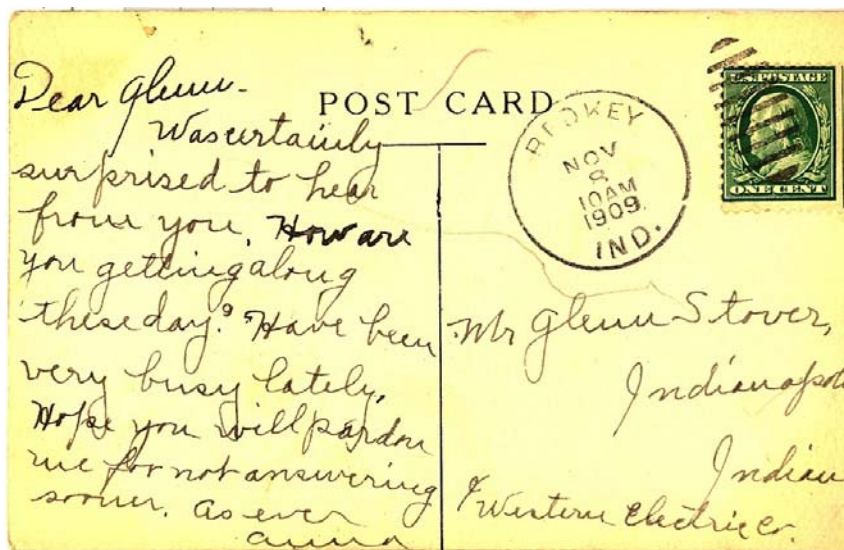 Dear Glenn-
Was certainly
surprised to hear
from you. How are
you getting along
these day? Have been
very busy lately.
Hope you will pardon
me for not answering
sooner. As ever
Anna
POST CARD
REDKEY
NOV
8
10AM
1909
IND.
U.S. POSTAGE
ONE CENT
Mr Glenn Stover,
Indianapol
Indian
c/ Western Electric Co.